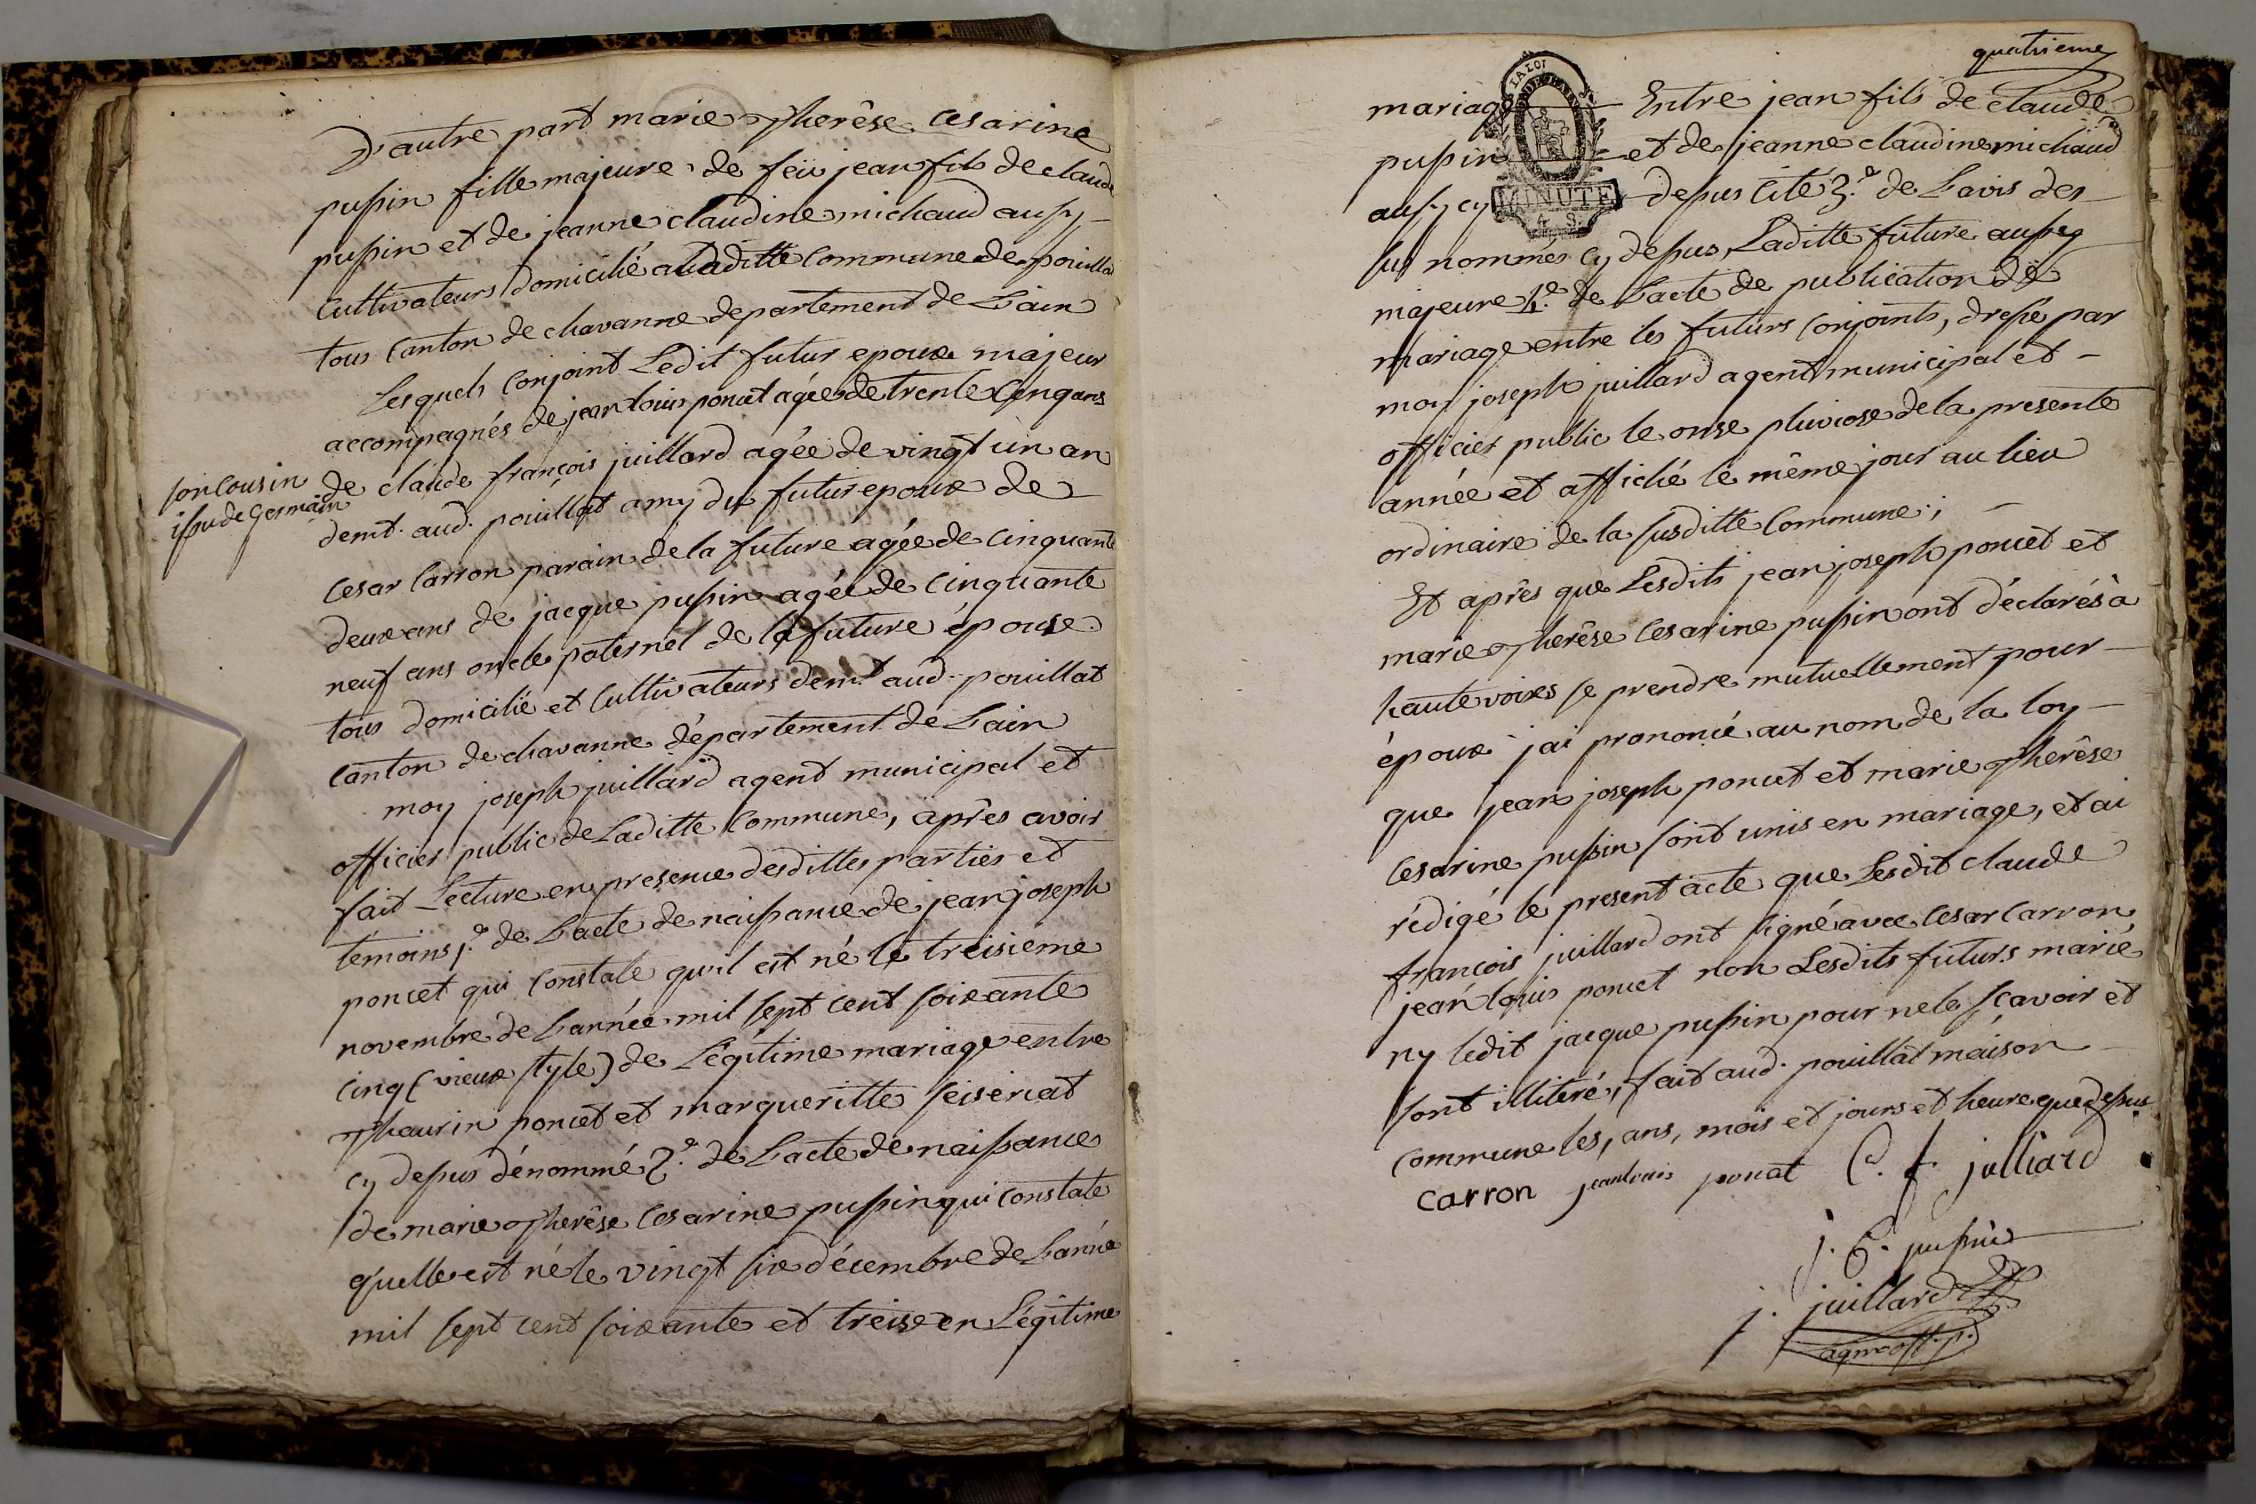 D'autre part marie Therêse Cesarine
pussin fille majeure de feu jean fils de claude
pussin et de jeanne claudine michaud aussy
Cultivateurs domicilié a Laditte Commune de pouillat
tous Canton de chavanne departement de Lain
Lesquels Conjoint Ledit futur epoux majeur
accompagnés de jean louis poncet agée de trente cinq ans
son Cousin
issu de Germain
de claude françois juillard agée de vingt un an
demt. aud. pouillat amy du futur epoux de
Cesar Carron parain de la future agée de cinquante
deux ans de jacque pussin agée de cinquante
neuf ans oncle paternel de la future épouse
tous domicilié et Cultivateurs demt. aud. pouillat
Canton de chavanne département de Lain
moy joseph juillard agent municipal et
officier public de Laditte Commune, après avoir
fait Lecture en presence desdittes parties et
témoins 1.° de Lacte de naissance de jean joseph
poncet qui Constate qu'il est né le treisieme
novembre de Lannée mil sept cent soixante
cinq (vieux style) de Légitime mariage entre
Thaurin poncet et margueritte seiseriat
cy dessus dénommé 2.° de Lacte de naissance
de marie Therêse Cesarine pussin qui constate
quelle est né le vingt six décembre de Lannée
mil sept cent soixante et treise en Légitime
quatrieme
mariage Entre jean fils de claude
LA LOI
pussin et de jeanne claudine michaud
aussy cy dessus cité 3.° de Lavis des
MINUTE
4 S.
sus nommés cy dessus, Laditte future aussy
majeure 4.° de Lacte de publication de
mariage entre les futurs Conjoints, dressé par
moy joseph juillard agent municipal et
officier public le onse pluviose de la presente
année et affiché le même jour au lieu
ordinaire de la susditte Commune;
Et après que Lesdits jean joseph poncet et
marie Therêse Cesarine pussin ont déclarés à
haute voixs se prendre mutuellement pour
époux jai prononcé au nom de la loy
que jean joseph poncet et marie Therêse
Cesarine pussin sont unis en mariage, et ai
rédigé le present acte que Lesdit claude
françois juillard ont signé avec Cesar Carron
jean louis poncet non Lesdits futurs marié
ny ledit jacque pussin pour ne le sçavoir et
sont illiteré, fait aud. pouillat maison
Commune les, ans, mois et jours et heure que dessus
carron jeanlouis poncet C. f. julliard
j. C. pussin
j. juillard
agm off. p.